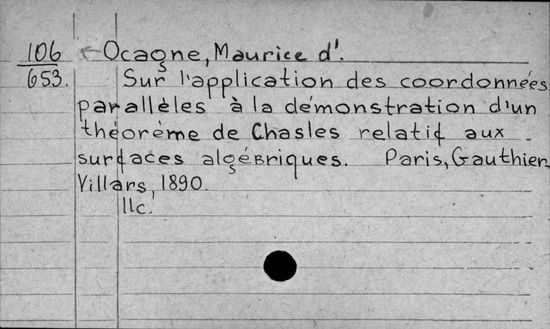 106 ← Ocagne, Maurice d'.
653. Sur l'application des coordonnées
parallèles à la démonstration d'un
théorème de Chasles relatif aux
surfaces algébriques. Paris, Gauthier-
Villars, 1890.
11c.